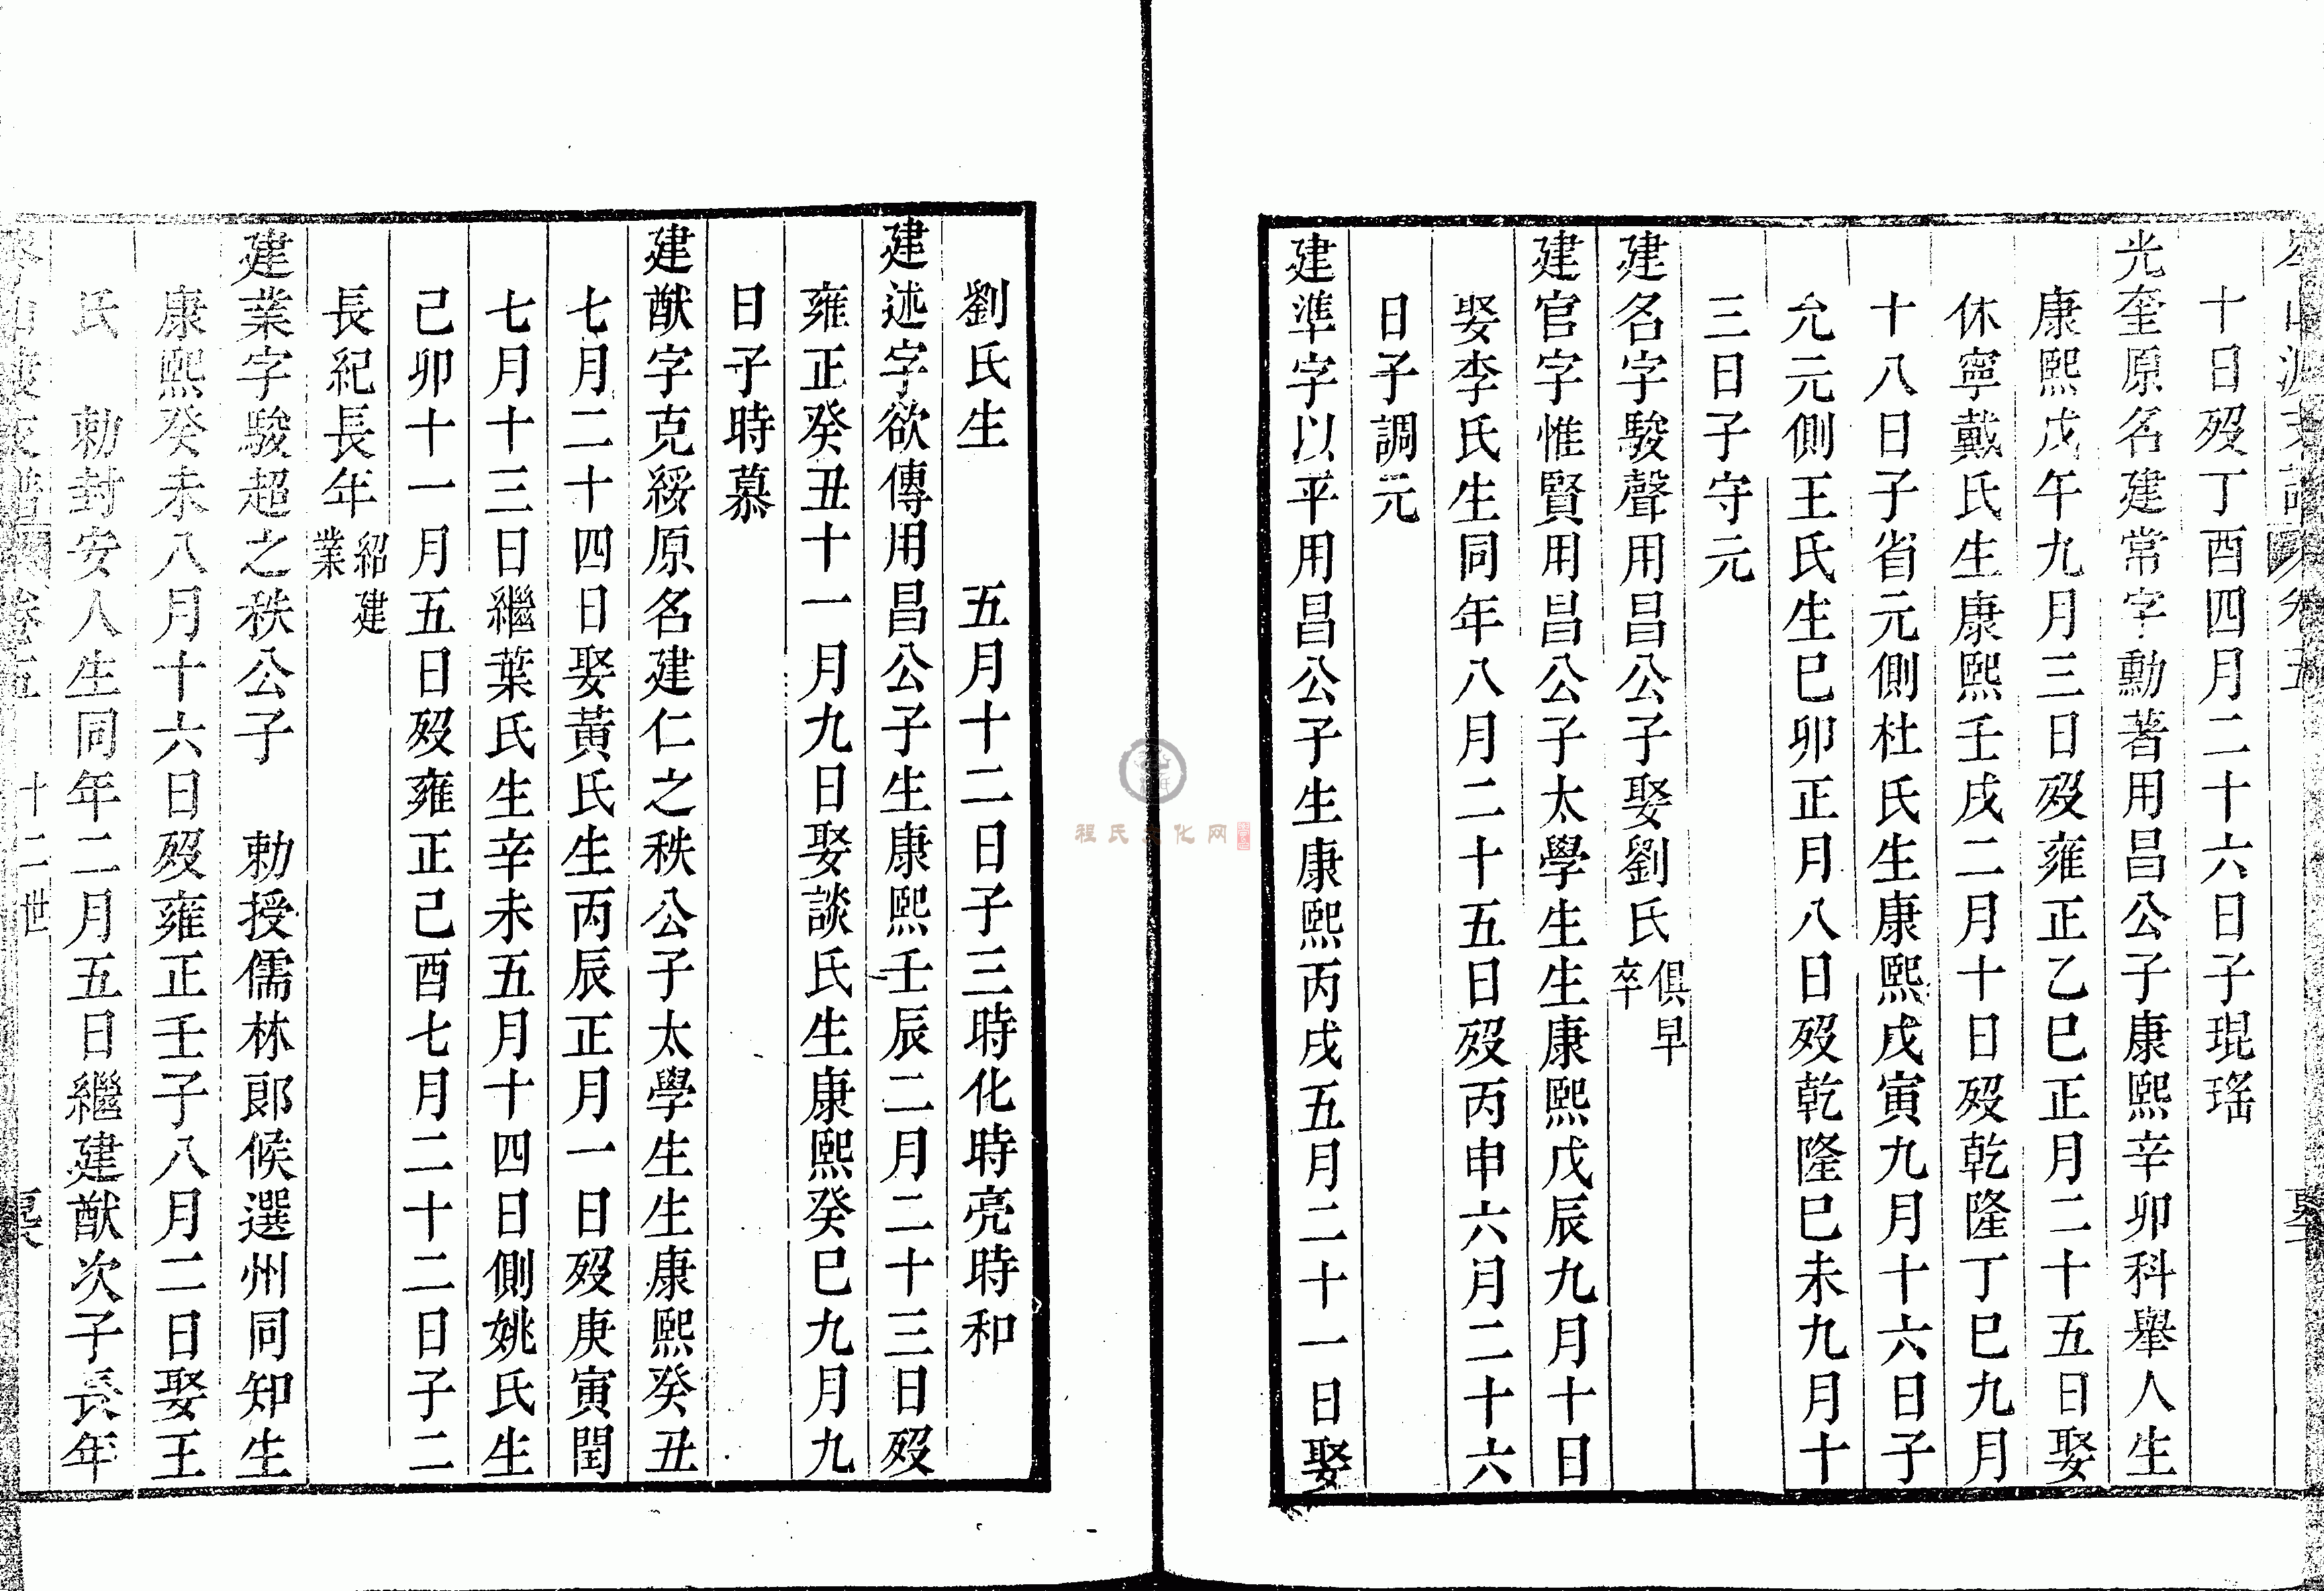 十日歿丁酉四月二十六日子琨瑤
光奎原名建常字勳著用昌公子康熙辛卯科舉人生
康熙戊午九月三日歿雍正乙巳正月二十五日娶
休寧戴氏生康熙壬戌二月十日歿乾隆丁巳九月
十八日子省元側杜氏生康熙戊寅九月十六日子
允元側王氏生巳卯正月八日歿乾隆巳未九月十
三日子守元
建名字駿聲用昌公子娶劉氏俱早卒
建官字惟賢用昌公子太學生生康熙戊辰九月十日
娶李氏生同年八月二十五日歿丙申六月二十六
日子調元
建準字以平用昌公子生康熙丙戌五月二十一日娶
劉氏生　　五月十二日子三時化時亮時和
建述字欲傳用昌公子生康熙壬辰二月二十三日歿
雍正癸丑十一月九日娶談氏生康熙癸巳九月九
日子時慕
建猷字克綏原名建仁之秩公子太學生生康熙癸丑
七月二十四日娶黃氏生丙辰正月一日歿庚寅閏
七月十三日繼葉氏生辛未五月十四日側姚氏生
己卯十一月五日歿雍正己酉七月二十二日子二
長紀長年紹建業
建業字駿超之秩公子　勅授儒林郎候選州同知生
康熙癸未八月十六日歿雍正壬子八月二日娶王
氏　勅封安人生同年二月五日繼建猷次子長年
十二世
程氏文化网